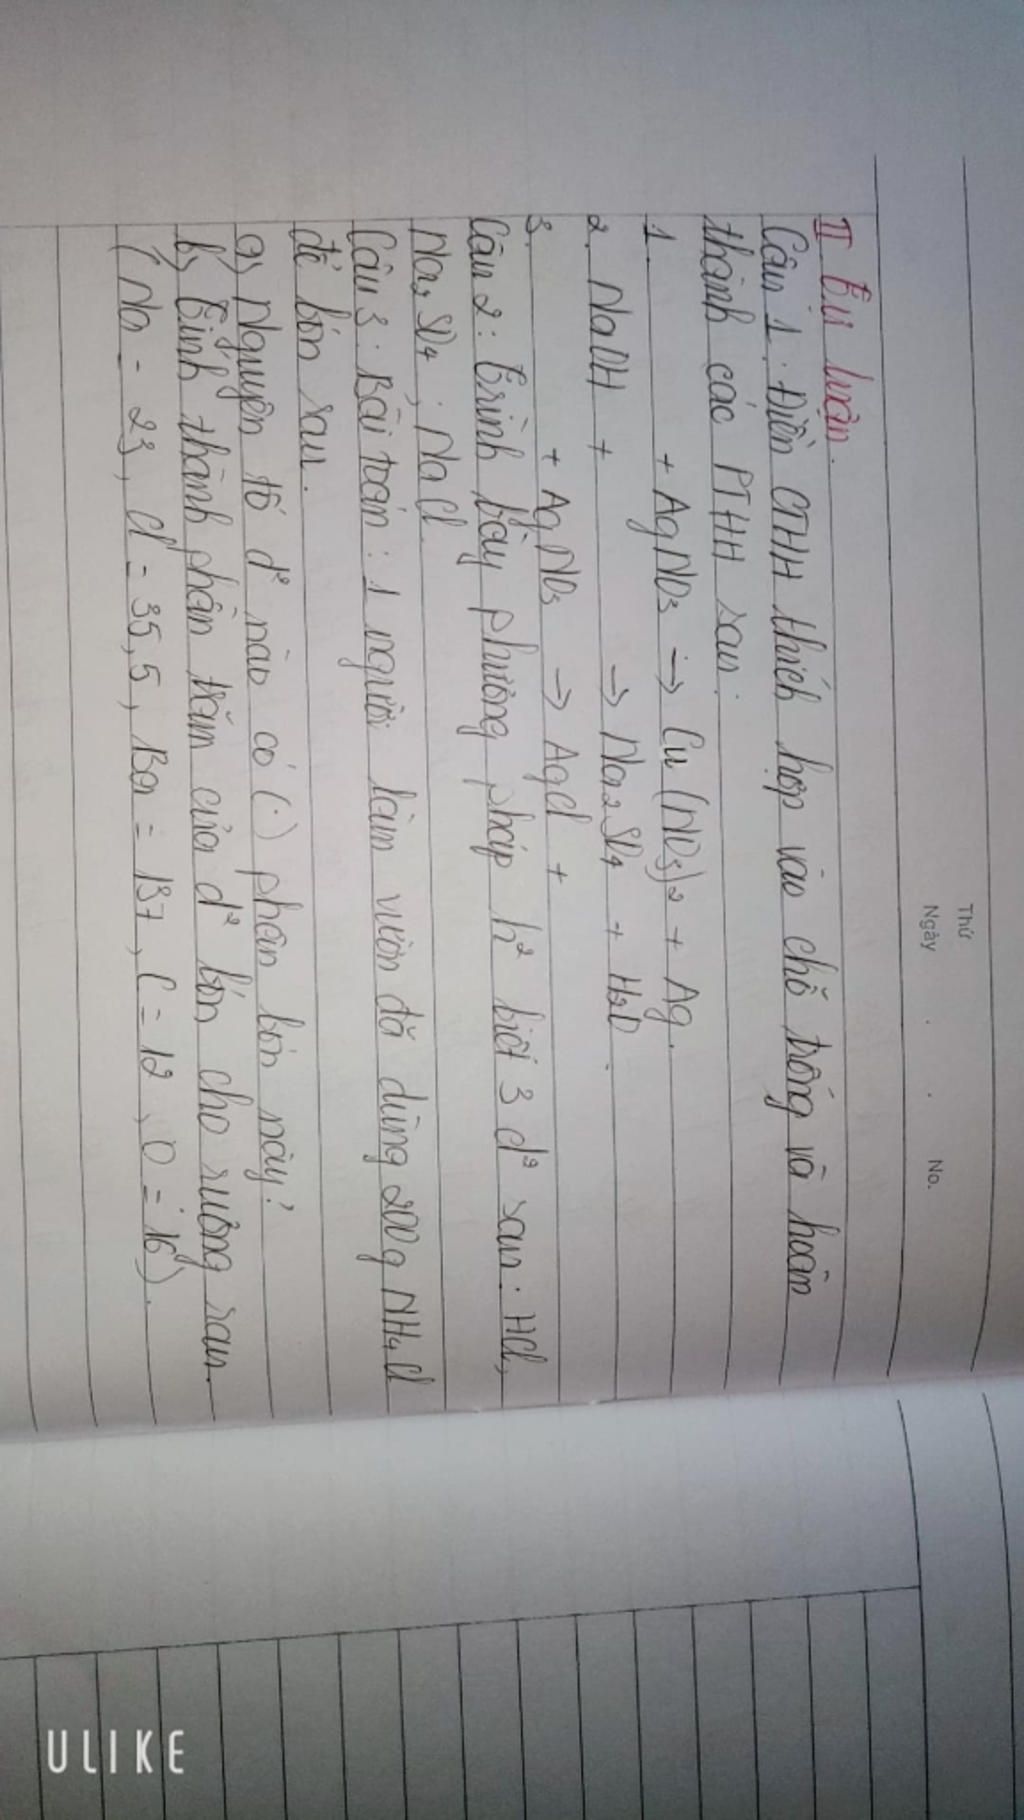 Thứ
Ngày . . No.
II Tự luận.
Câu 1: Điền CTHH thích hợp vào chỗ trống và hoàn
thành các PTHH sau:
1. + AgNO3 → Cu(NO3)2 + Ag.
2. NaOH + → Na2SO4 + H2O.
3. + AgNO3 → AgCl +
Câu 2: Trình bày phương pháp h² biết 3 d² sau: HCl,
Na2SO4; NaCl
Câu 3: Bài toán: 1 người làm vườn đã dùng 200g NH4Cl
để bón rau.
a, Nguyên tố d² nào có (.) phân bón này?
b, Tính thành phần trăm của d² bón cho ruộng rau.
(Na = 23, Cl = 35,5, Ba = 137, C = 12, O = 16).
ULIKE